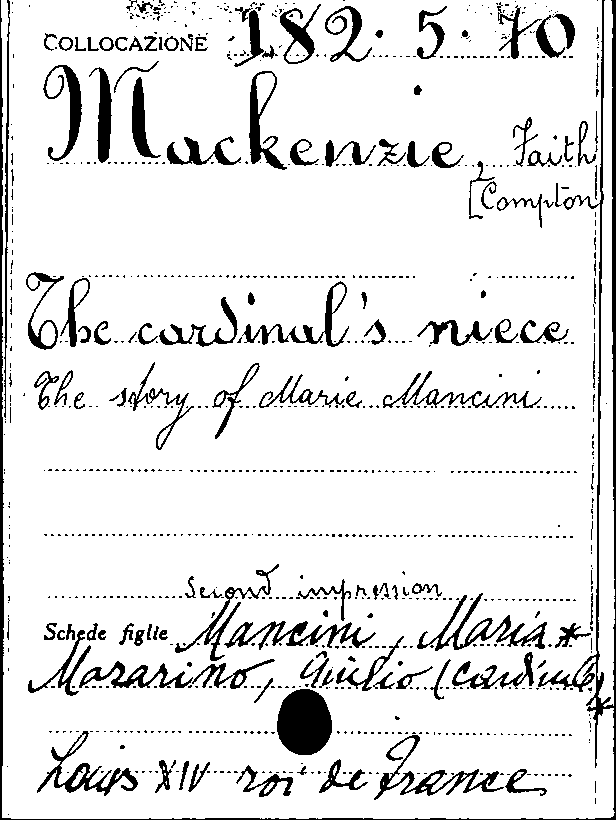 COLLOCAZIONE 182. 5. 70
Mackenzie, Faith
[Compton
The cardinal's niece
The story of Marie Mancini
second impression
Schede figlie Mancini, Maria *
Mazarino, Giulio (Cardinale) *
Louis XIV roi de France